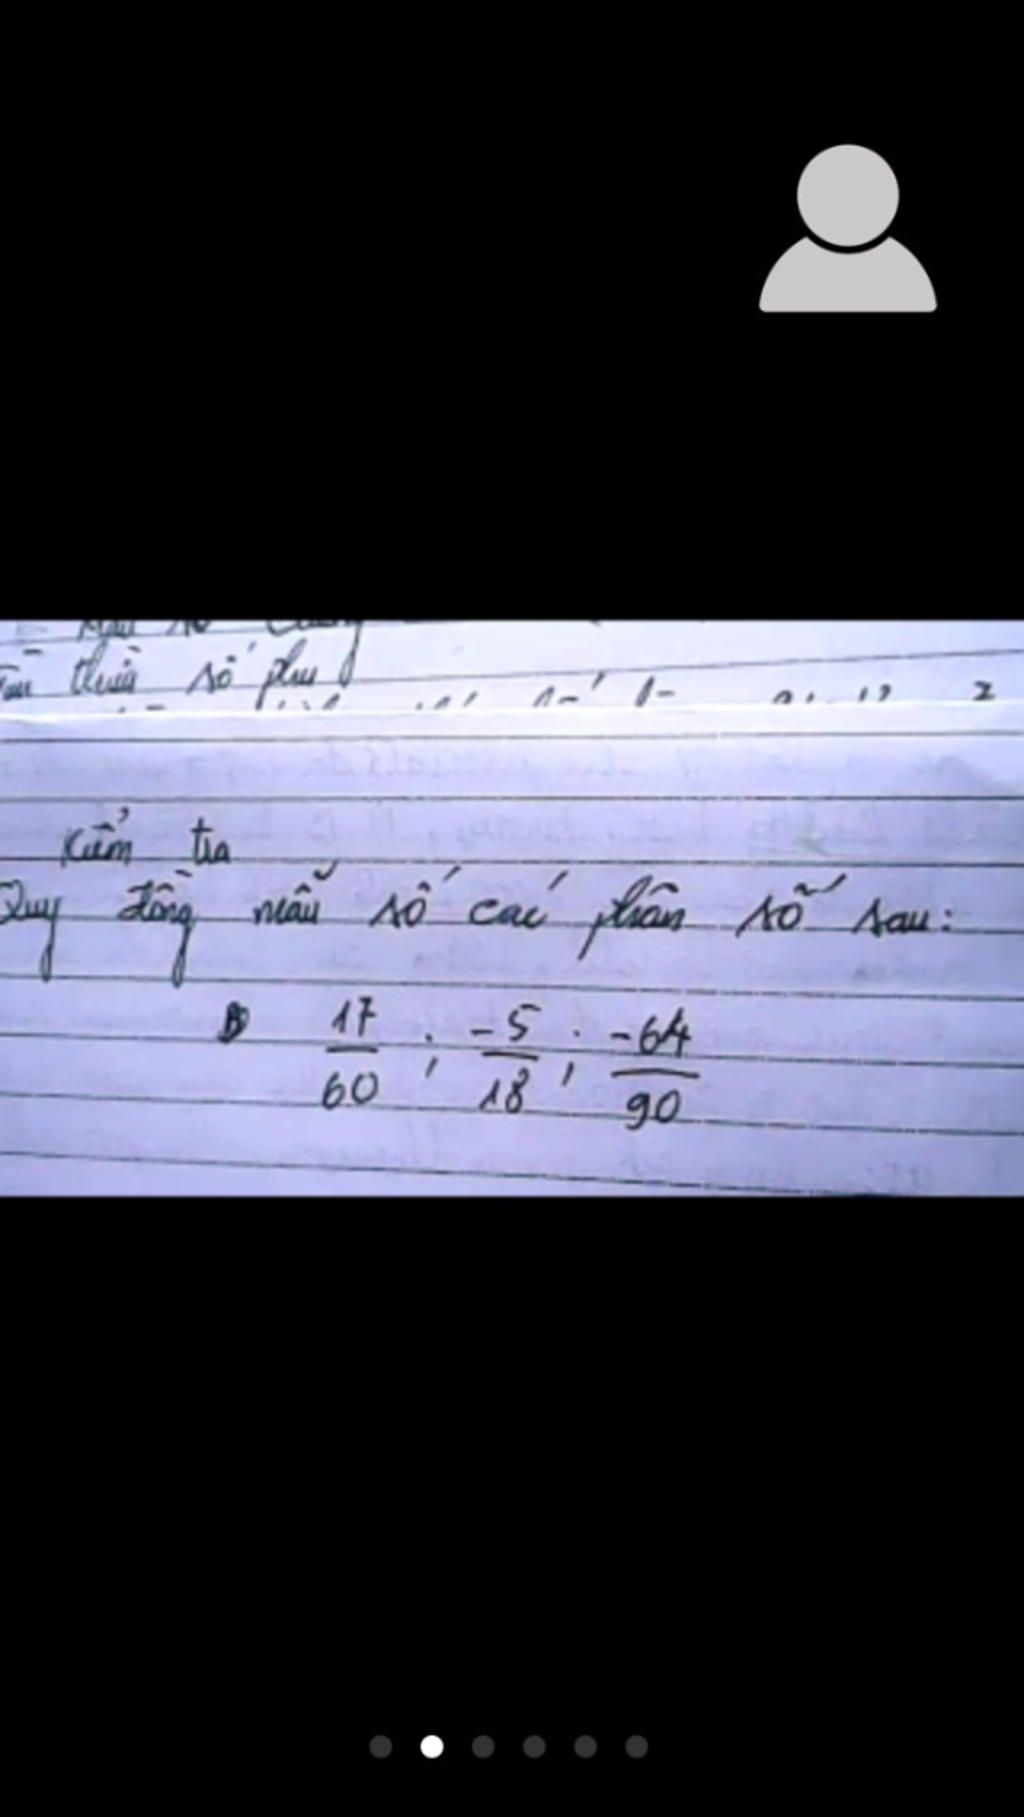 thừa số phụ
Kiểm tra
Quy đồng mẫu số các phân số sau:
17/60 ; -5/18 ; -64/90